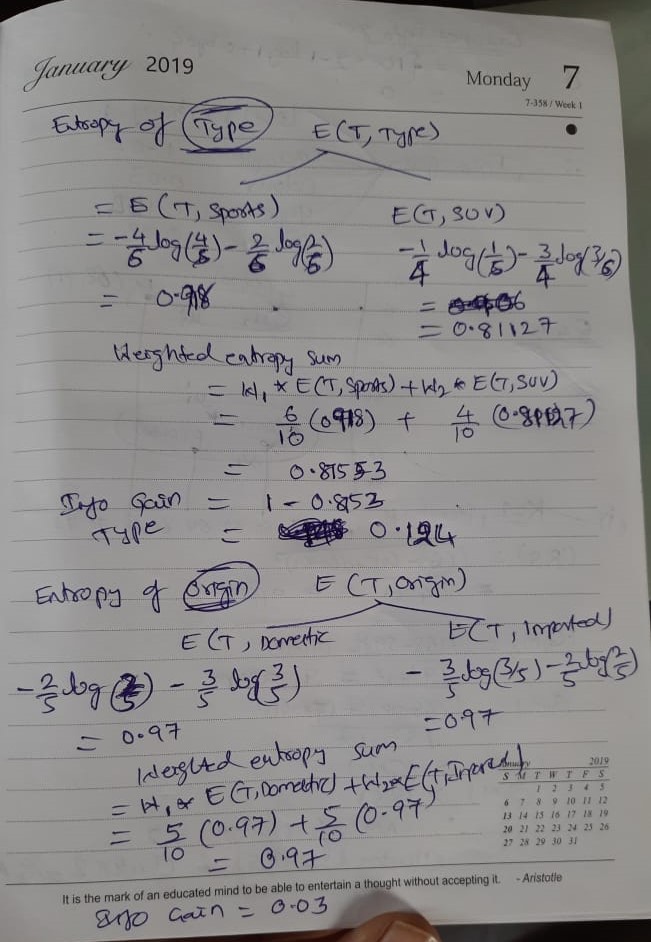 January 2019
Monday 7
7-358 / Week 1
Entropy of Type E(T, Type)
= E(T, Sports) E(T, SUV)
= -4/6 log(4/6) - 2/6 log(2/6) -1/4 log(1/6) - 3/4 log(3/6)
= 0.918
= 0.81127
Weighted entropy sum
= W1 * E(T, Sports) + W2 * E(T, SUV)
= 6/10 (0.918) + 4/10 (0.81127)
= 0.87553
Info Gain = 1 - 0.8753
Type = 0.124
Entropy of Origin E(T, Origin)
E(T, Domestic E(T, Imported)
-2/5 log(2/5) - 3/5 log(3/5) - 3/5 log(3/5) - 2/5 log(2/5)
= 0.97 = 0.97
Weighted entropy sum
= W1 * E(T, Domestic) + W2 * E(T, Imported)
= 5/10 (0.97) + 5/10 (0.97)
= 0.97
January 2019
S M T W T F S
1 2 3 4 5
6 7 8 9 10 11 12
13 14 15 16 17 18 19
20 21 22 23 24 25 26
27 28 29 30 31
It is the mark of an educated mind to be able to entertain a thought without accepting it. - Aristotle
Info Gain = 0.03